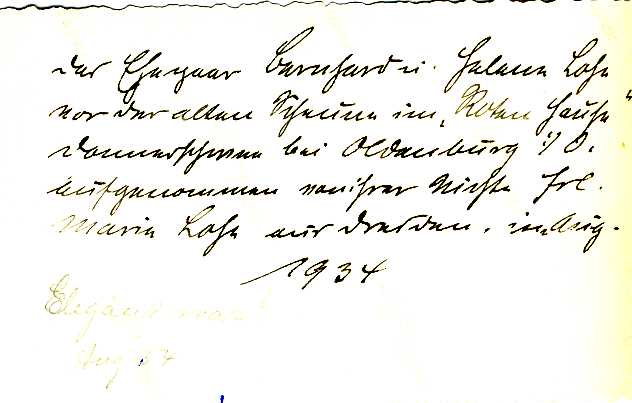 Das Ehepaar Bernhard u. Helene Lohse
vor der alten Scheune im „Roten Hause“
Donnerschwee bei Oldenburg i/O.
aufgenommen von ihrer Nichte Frl.
Maria Lohse aus Dresden. im Aug.
1934
Elegant
Aug 34